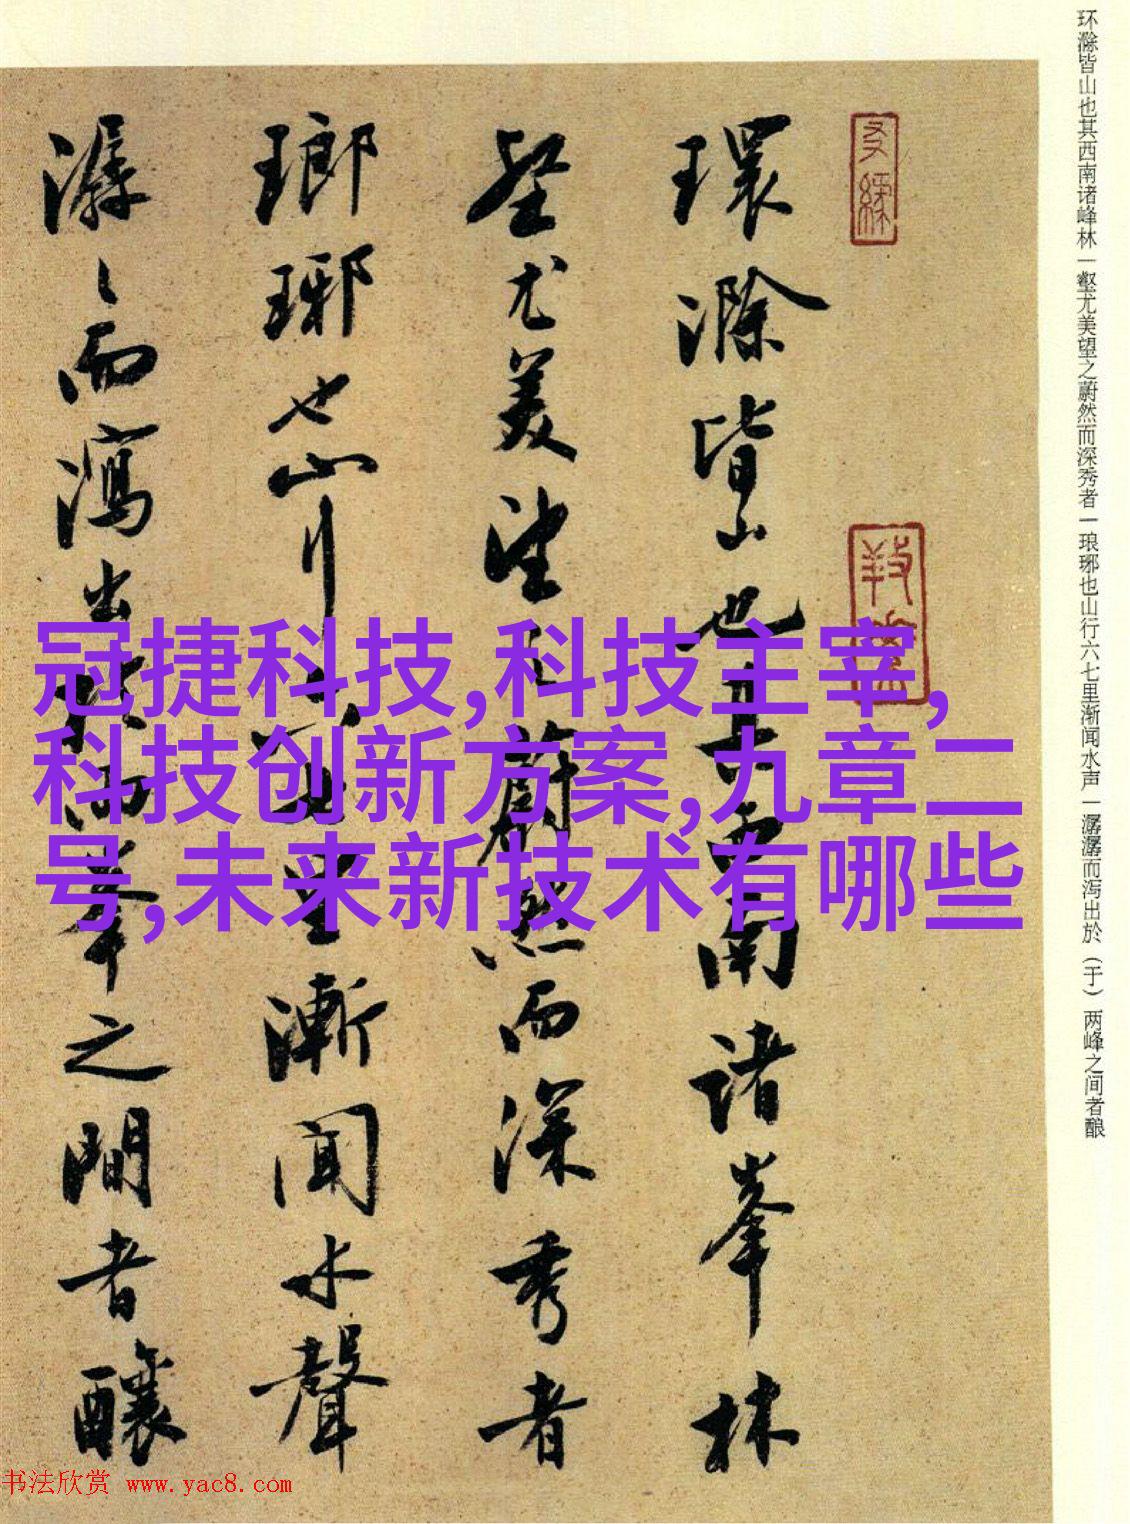 环滁皆山也其西南诸峰林一壑尤美望之蔚然而深秀者一琅琊也山行六七里渐闻水声一潺潺而泻出於（于）两峰之间者酿
環滁皆山也其西南诸峯林
壑尤美望之蔚然而深秀者
瑯琊也山行六七里漸闻水聲
潺〻而瀉出於两峯之間者釀
冠捷科技,科技主宰,
科技创新方案,九章二
号,未来新技术有哪些
书法欣赏 www.yac8.com